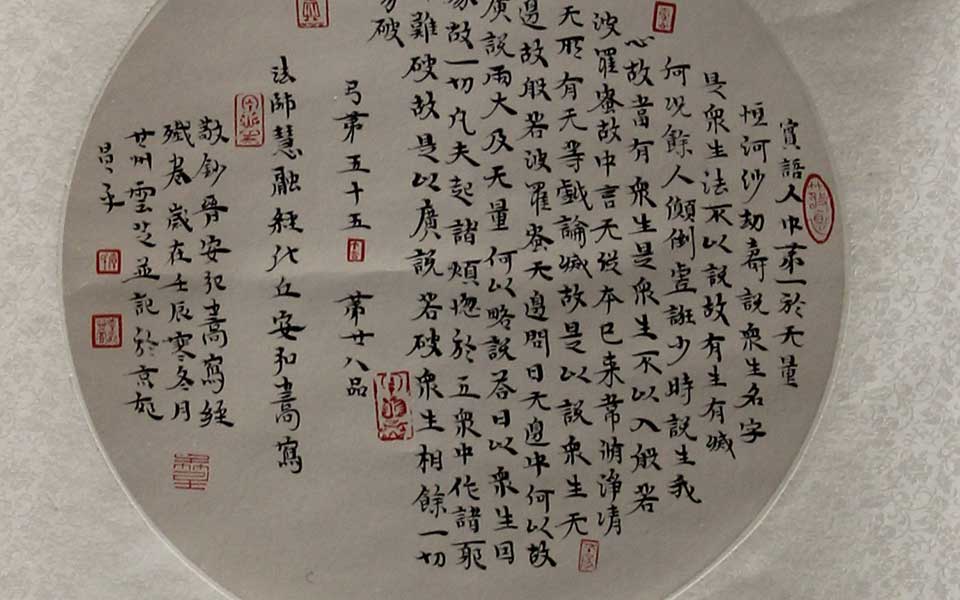 實語人中第一於无量
恒河沙劫壽說衆生名字
是衆生法不以說故有生有滅
何況餘人傾倒虛誑少時說生我
心故當有衆生是衆生不以入般若
波羅蜜故中言无從本已来常脩淨清
无所有无等戲論滅故是以說衆生无
邊故般若波羅蜜无邊問曰无邊中何以故
廣說兩大及无量何以略說荅曰以衆生因
緣故一切凡夫起諸煩惱於五衆中作諸耶
難破故是以廣說若破衆生相餘一切
易破
弓第五十五 第廿八品
法師慧融經比丘安弘嵩寫
敬鈔晉安弘嵩寫經
殘卷歲在壬辰寒冬月
廿州雲芝並記於京苑